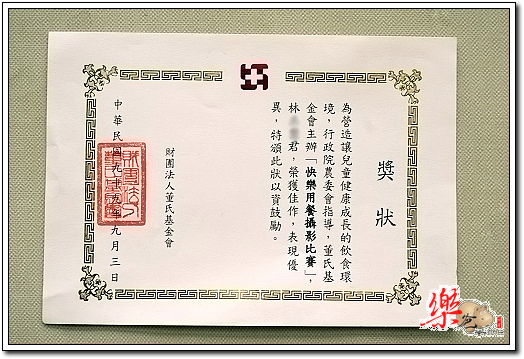 獎狀
為營造讓兒童健康成長的飲食環
境，行政院農委會指導，董氏基
金會主辦「快樂用餐攝影比賽」，
林君，榮獲佳作，表現優
異，特頒此狀以資鼓勵。
財團法人董氏基金會
中華民國九十五年九月三日
樂